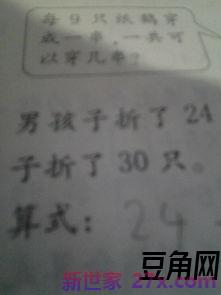 每 9 只纸鹤穿
成一串,一共可
以穿几串?
男孩子折了 24
子折了 30 只。
算式: 24
豆角网
新世家 27x.com